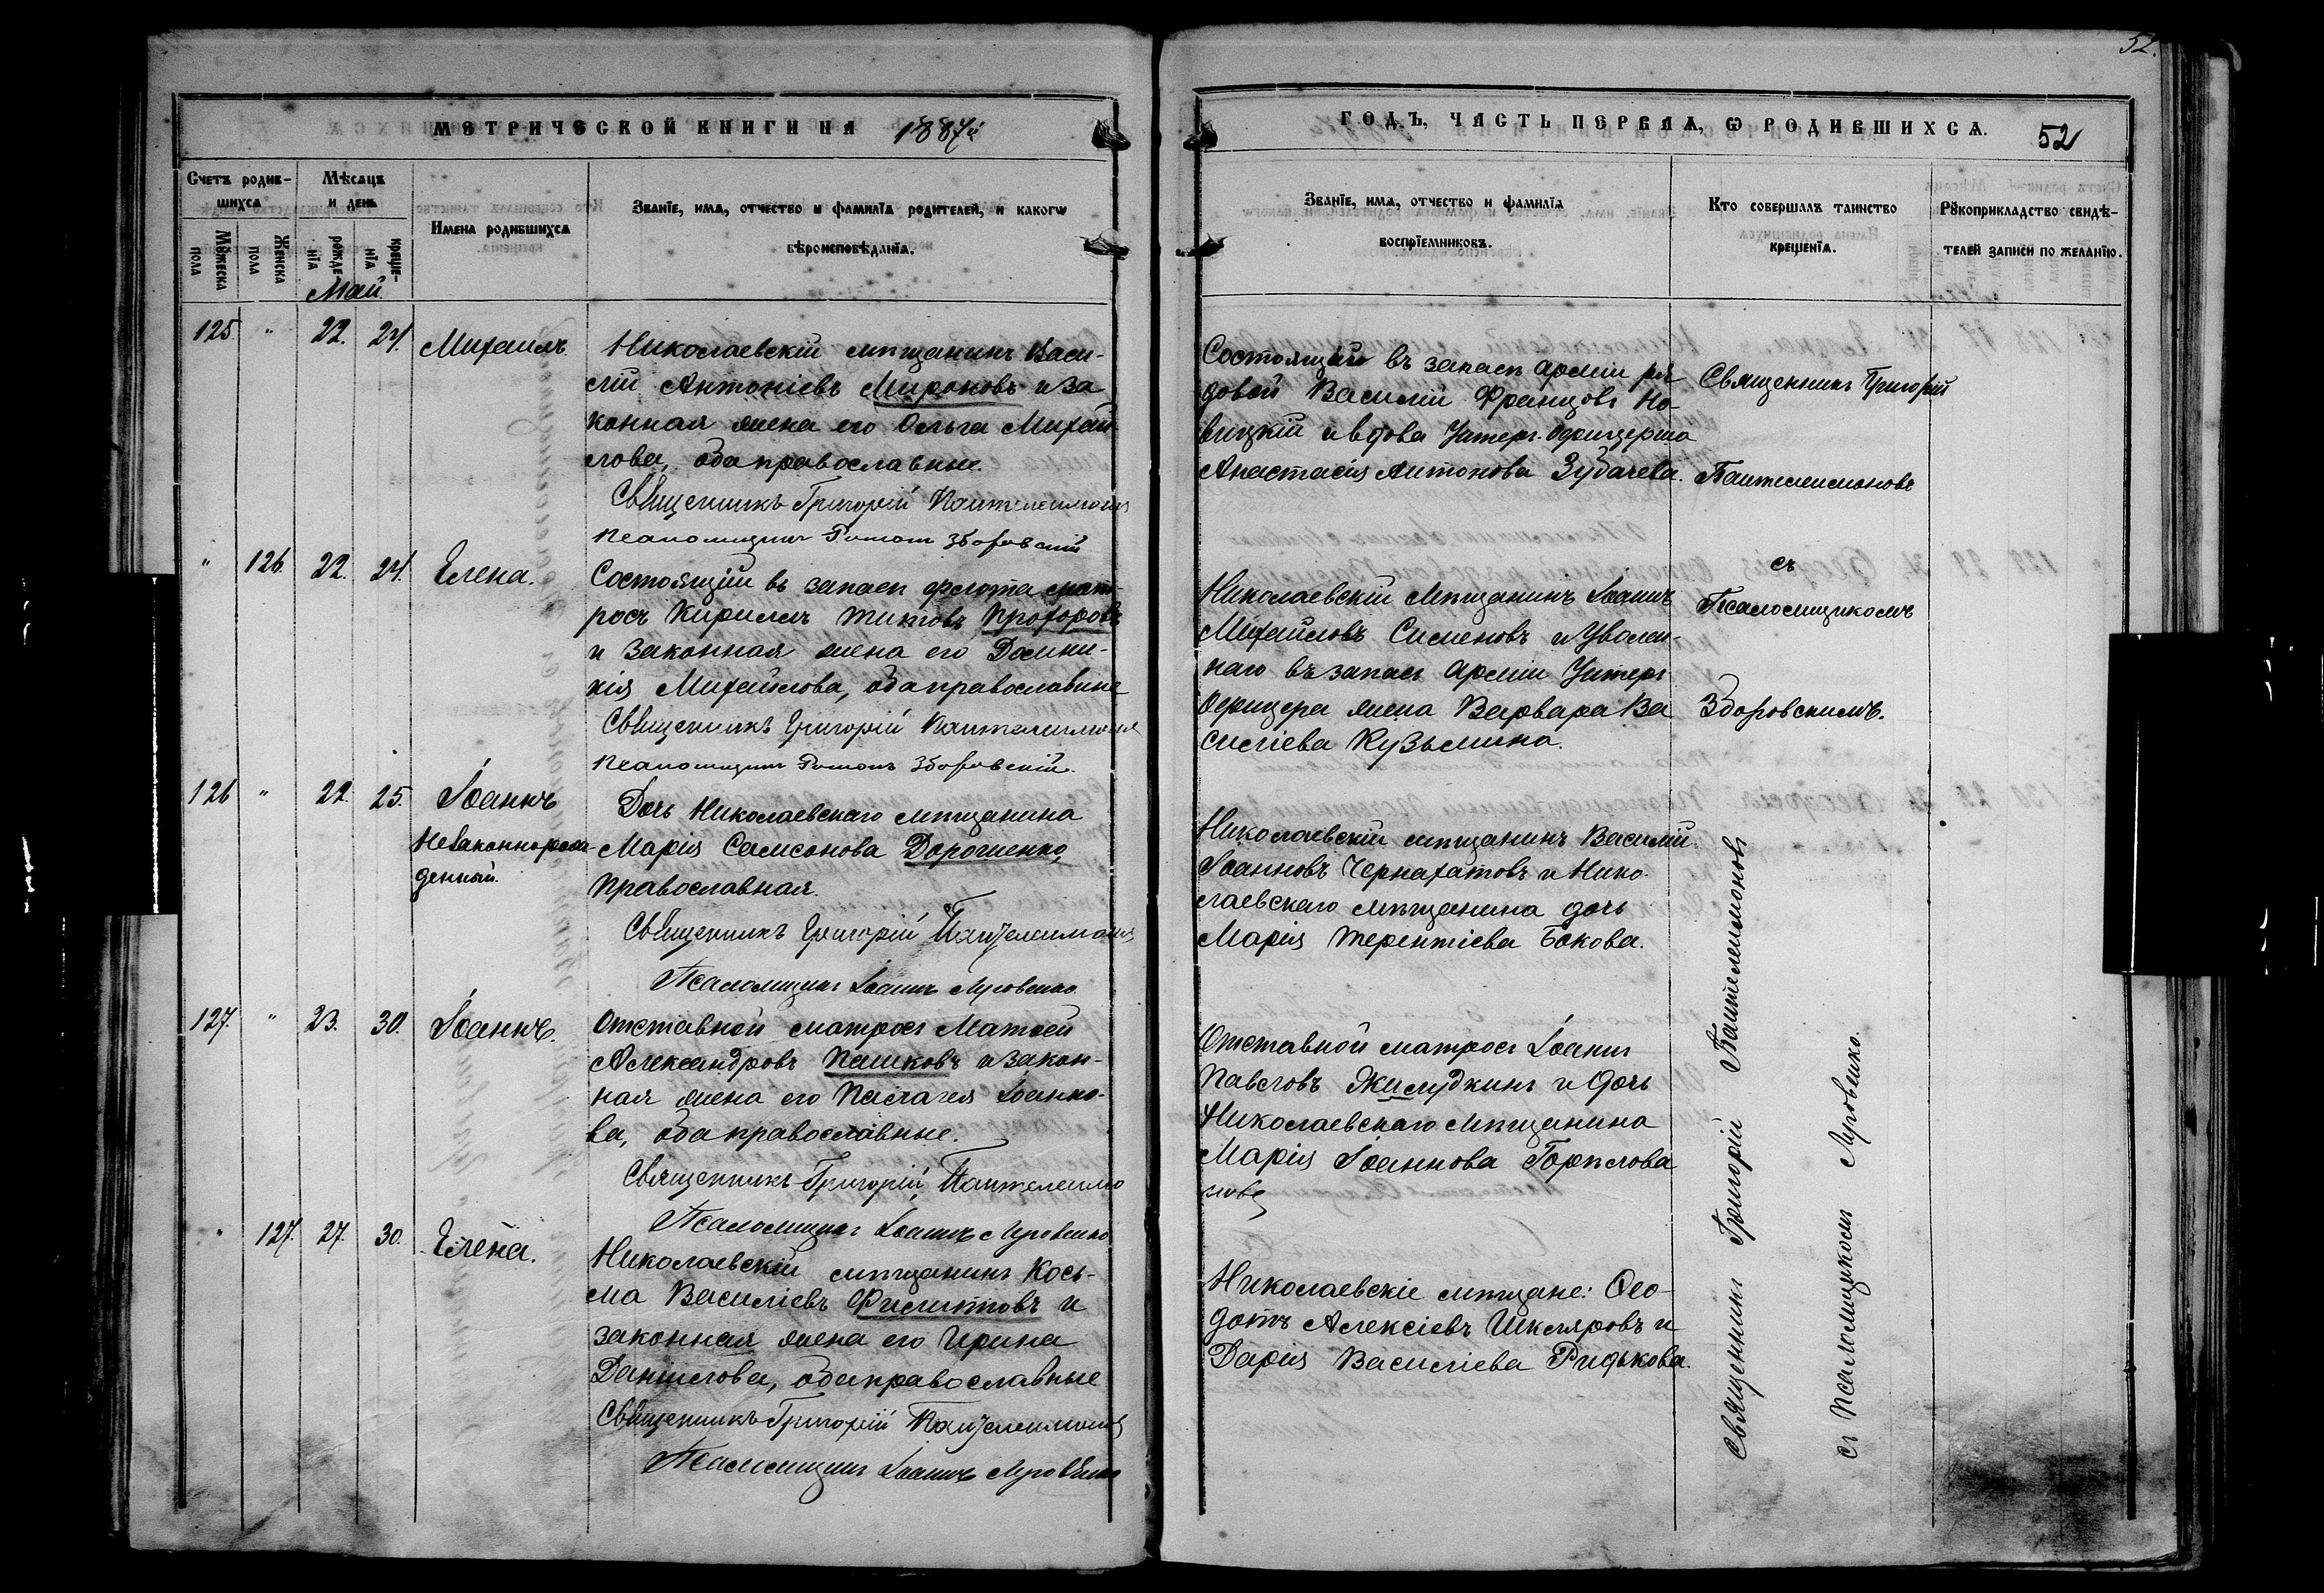 52.
МЕТРИЧЕСКОЙ КНИГИ НА 1887й
ГОДЪ, ЧАСТЬ ПЕРВАЯ, Ѡ РОДИВШИХСѦ. 52
Счетъ родив-
шихсѧ
Мѣсѧцъ
и день
Мѹжеска
пола
Женска
пола
рожде-
нїѧ
креще-
нїѧ
Имена родившихсѧ
Званїе, имѧ, отчество и фамилїѧ родителей, и какогѡ
вѣроисповѣданїѧ.
Званїе, имѧ, отчество и фамилїѧ
воспрїемниковъ.
Кто совершалъ таинство
крещенїѧ.
Рѹкоприкладство свидѣ-
телей записи по желанїю.
Май
125 " 22. 24. Михаилъ
Николаевскій мѣщанинъ Васи-
лій Антоніевъ Мироновъ и за
конная жена его Ольга Михай
лова, оба православные.
Священникъ Григорій Пантелеимонов
Псаломщикъ Зборовскій
Состоящій въ запасѣ арміи ря
довой Василій Францовъ Но-
вицкій и вдова Унтеръ-офицерша
Анастасія Антонова Зубачева.
" 126. 22. 24. Елена.
Состоящій въ запасѣ флота мат-
росъ Кириллъ Титовъ Прохоровъ
и законная жена его Домни-
кія Михайлова, оба православные
Священникъ Григорій Пантелеимонов
Псаломщикъ Зборовскій.
Николаевскій мѣщанинъ Іоаннъ
Михайловъ Сименовъ и уволен-
наго въ запасъ арміи Унтеръ
Офицера жена Варвара Ва
силіева Кузьмина.
Священникъ Григорій
Пантелеимоновъ
съ
Псаломщикомъ
Зборовскимъ.
126 " 22. 25. Іоаннъ
Незаконнорож-
денный.
Дочь Николаевскаго мѣщанина
Марія Самсонова Дорошенко,
православная.
Священникъ Григорій Пантелеимонов
Псаломщикъ Іоаннъ Луговенко
Николаевскій мѣщанинъ Василій
Іоанновъ Чернахатовъ и Нико-
лаевскаго мѣщанина дочь
Марія Терентіева Бокова.
127. " 23. 30. Іоаннъ.
Отставной матросъ Матѳей
Александровъ Пашковъ и закон-
ная жена его Пелагея Іоанно-
ва, оба православные.
Священникъ Григорій Пантелеимо
Псаломщикъ Іоаннъ Луговенко
Отставной матросъ Іоаннъ
Павловъ Жилудкинъ и дочь
Николаевскаго мѣщанина
Марія Іоаннова
" 127. 27. 30. Елена.
Николаевскій мѣщанинъ Кось-
ма Василіевъ Филиптовъ и
законная жена его Ирина
Даніилова, оба православные
Священникъ Григорій Пантелеимонов
Псаломщикъ Іоаннъ Луговенко
Николаевскіе мѣщане: Ѳео-
дотъ Алексіевъ Шкляровъ и
Дарія Василіева Ридькова.
Священникъ Григорій Пантелеимоновъ
съ Псаломщикомъ Луговенко.